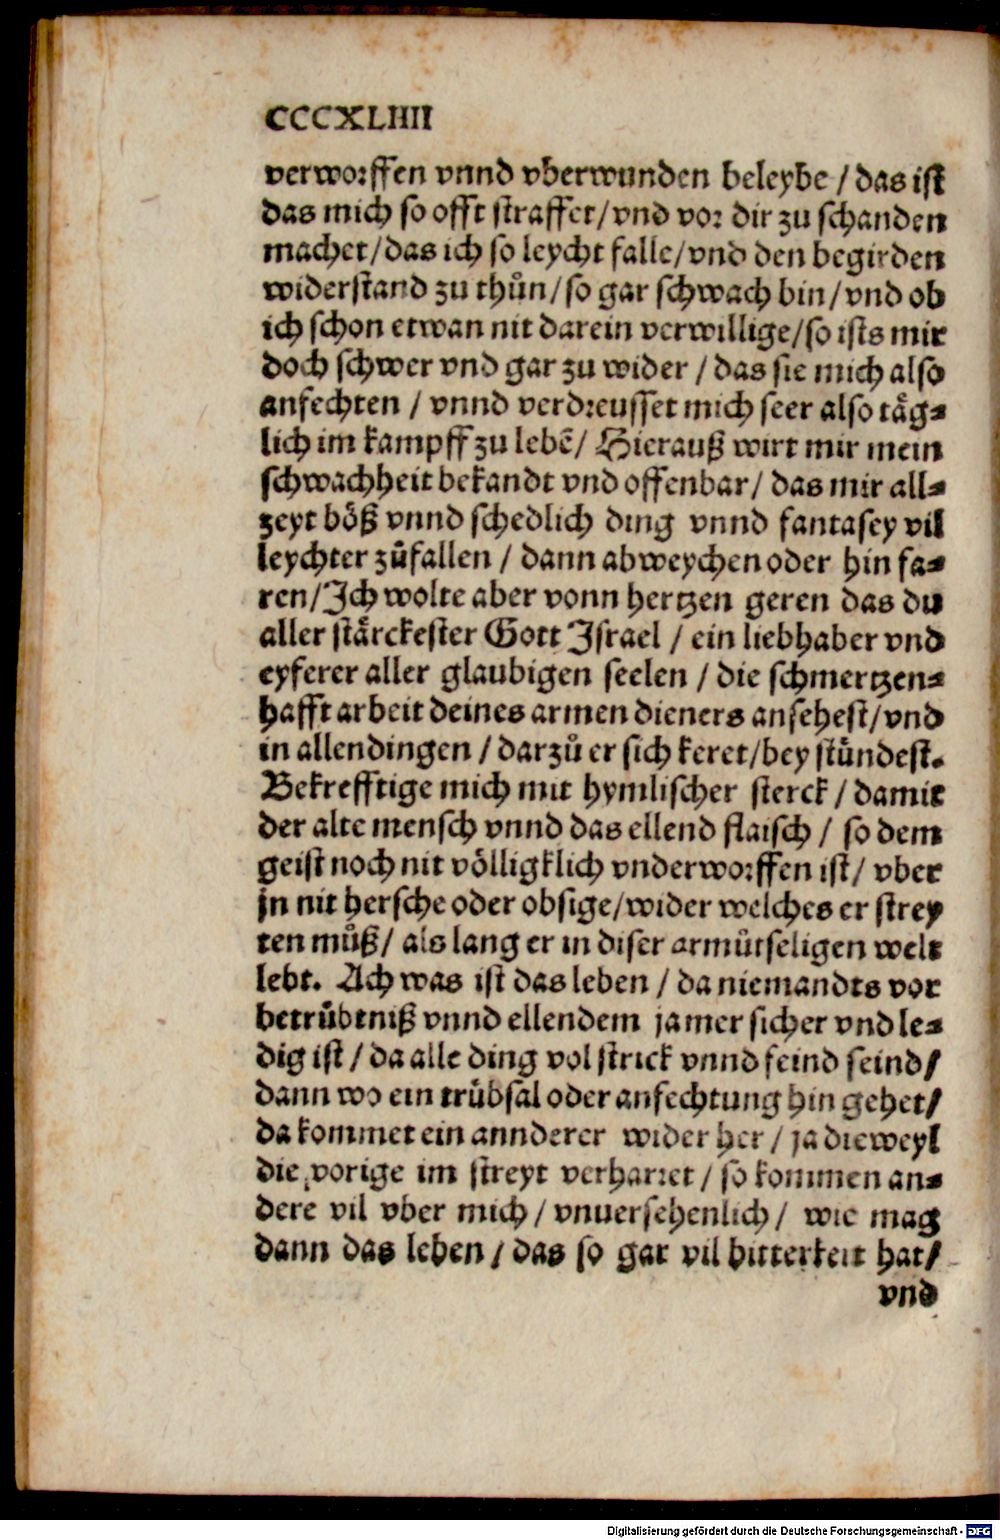 CCCXLIIII
verworffen vnnd vberwunden beleybe / das ist
das mich so offt straffet/vnd vor dir zu schanden
machet/das ich so leycht falle/vnd den begirden
widerstand zu thůn/so gar schwach bin/vnd ob
ich schon etwan nit darein verwillige/so ists mir
doch schwer vnd gar zu wider / das sie mich also
anfechten / vnnd verdreusset mich seer also täg⸗
lich im kampff zu lebē/ Hierauß wirt mir mein
schwachheit bekandt vnd offenbar/ das mir all⸗
zeyt böß vnnd schedlich ding vnnd fantasey vil
leychter zůfallen / dann abweychen oder hin fa⸗
ren/Ich wolte aber vonn hertzen geren das du
aller stärckester Gott Israel / ein liebhaber vnd
eyferer aller glaubigen seelen / die schmertzen⸗
hafft arbeit deines armen dieners ansehest/vnd
in allendingen / darzů er sich keret/bey stündest.
Bekrefftige mich mit hymlischer sterck / damit
der alte mensch vnnd das ellend flaisch / so dem
geist noch nit völligklich vnderworffen ist/ vber
jn nit hersche oder obsige/wider welches er strey
ten můß/ als lang er in diser armůtseligen welt
lebt. Ach was ist das leben / da niemandts vor
betrübtniß vnnd ellendem jamer sicher vnd le⸗
dig ist / da alle ding vol strick vnnd feind seind/
dann wo ein trübsal oder anfechtung hin gehet/
da kommet ein annderer wider her / ja dieweyl
die vorige im streyt verharret / so kommen an⸗
dere vil vber mich / vnuersehenlich / wie mag
dann das leben / das so gar vil bitterkeit hat/
vnd
Digitalisierung gefördert durch die Deutsche Forschungsgemeinschaft - DFG